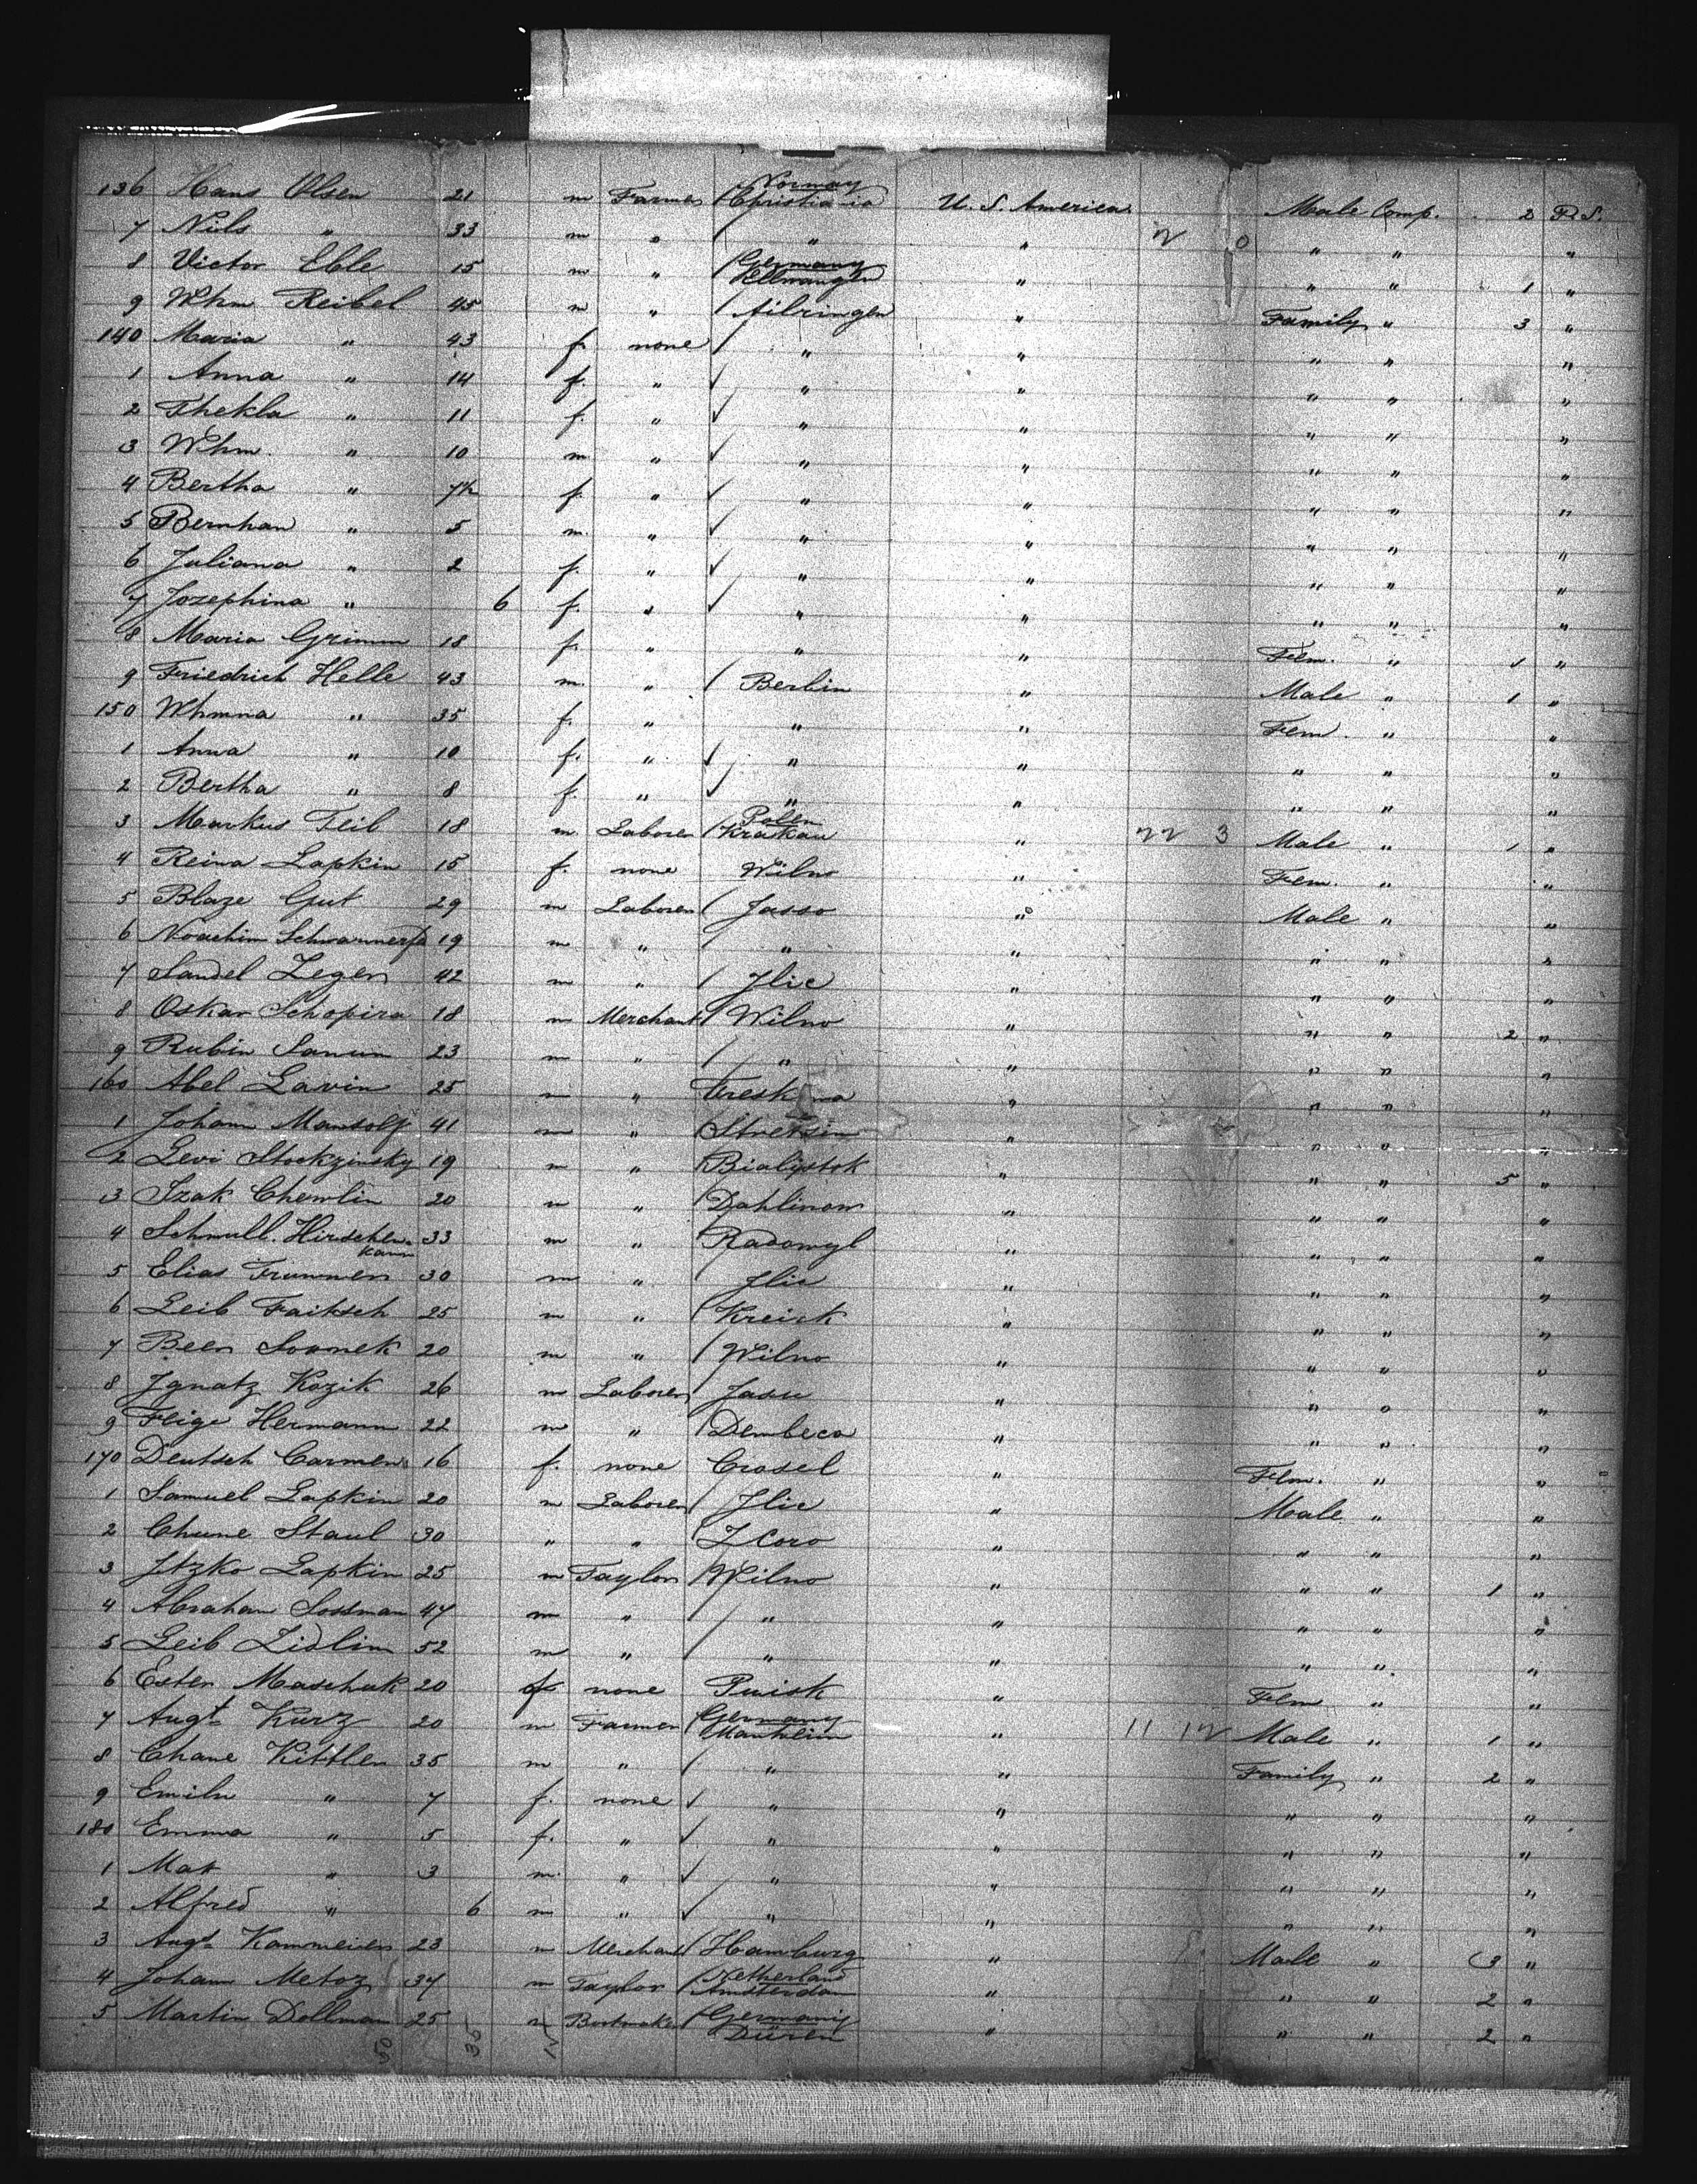 136 Hans Olsen 21 m Farmer Norway Christiania U. S. America Male Comp. 2 P.S.
7 Nils " 33 m " " " 2 0 " " "
8 Victor Eble 15 m " Germany Ellwangen " " " 1 "
9 Whm Reibel 45 m " Ailringen " Family " 3 "
140 Maria " 43 f none " " " " "
1 Anna " 14 f. " " " " " "
2 Thekla " 11 f. " " " " " "
3 Whm. " 10 m " " " " " "
4 Bertha " 7½ f. " " " " " "
5 Bernhan " 5 m. " " " " " "
6 Juliana " 2 f. " " " " " "
7 Jozephina " 6 f. " " " " " "
8 Maria Grimm 18 f. " " " Fem. " 1 "
9 Friedrich Helle 43 m. " Berlin " Male " 1 "
150 Whmna " 35 f. " " " Fem. " "
1 Anna " 10 f. " " " " " "
2 Bertha " 8 f. " " " " " "
3 Markus Teib 18 m Laborer Polen Krakau " 22 3 Male " 1 "
4 Reina Lapkin 15 f. none Wilno " Fem. " "
5 Blaze Gut 29 m Laborer Jasso " Male " "
6 19 m " " " " " "
7 Sandel Zeger 42 m " Ilie " " " "
8 Oskar Schopira 18 m Merchant Wilno " " " 2 "
9 Rubin 23 m " " " " " "
160 Abel Lavin 25 m " " " " "
1 Johann Mansolf 41 m " " " " "
2 Levi Stockzinsky 19 m " Bialystok " " " 5 "
3 Izak Chemlin 20 m " Dahlinow " " " "
4 Schmull. Hirschenkann 33 m " Radomyl " " " "
5 Elias Trummer 30 m " Ilie " " " "
6 Leib Faitsch 25 m " Kreick " " " "
7 Beer 20 m " Wilno " " " "
8 Ignatz Kozik 26 m Laborer " " " "
9 Feige Hermann 22 m " Dembeca " " " "
170 Deutsch Carmen 16 f. none Crasel " Fem. " "
1 Samuel Lapkin 20 m Laborer Ilie " Male " "
2 Chune Staul 30 " " " " " "
3 Itzko Lapkin 25 m Taylor Wilno " " " 1 "
4 Abraham Sossman 47 m " " " " " "
5 Leib Zidlim 52 m " " " " " "
6 Ester Maschuk 20 f none Pinsk " Fem " "
7 Augt Kurz 20 m Farmer Germany Manheim " 11 12 Male " 1 "
8 Chane Kittler 35 m " " " Family " 2 "
9 Emiln " 7 f. none " " " " "
180 Emma " 5 f. " " " " " "
1 Max " 3 m. " " " " " "
2 Alfred " 6 m " " " " " "
3 Augt Kammeier 23 m Merchant Hamburg " Male " 3 "
4 Johann Metoz 34 m Taylor Netherland Amsterdam " " " 2 "
5 Martin Dollman 25 m Bootmaker Germany Düren " " " 2 "
50 36 12